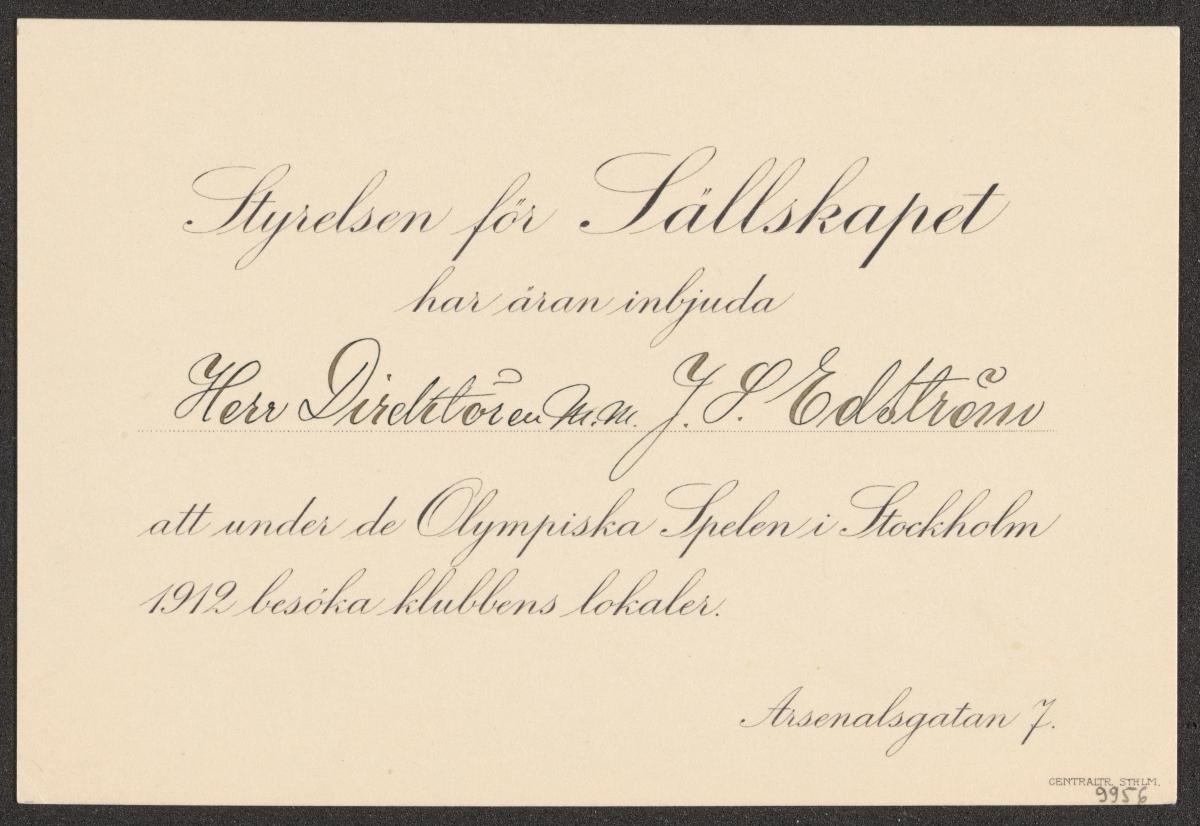 Styrelsen för Sällskapet
har äran inbjuda
Herr Direktören m.m. J. S. Edström
att under de Olympiska Spelen i Stockholm
1912 besöka klubbens lokaler.
Arsenalsgatan 7.
CENTRALTR. STHLM.
9956